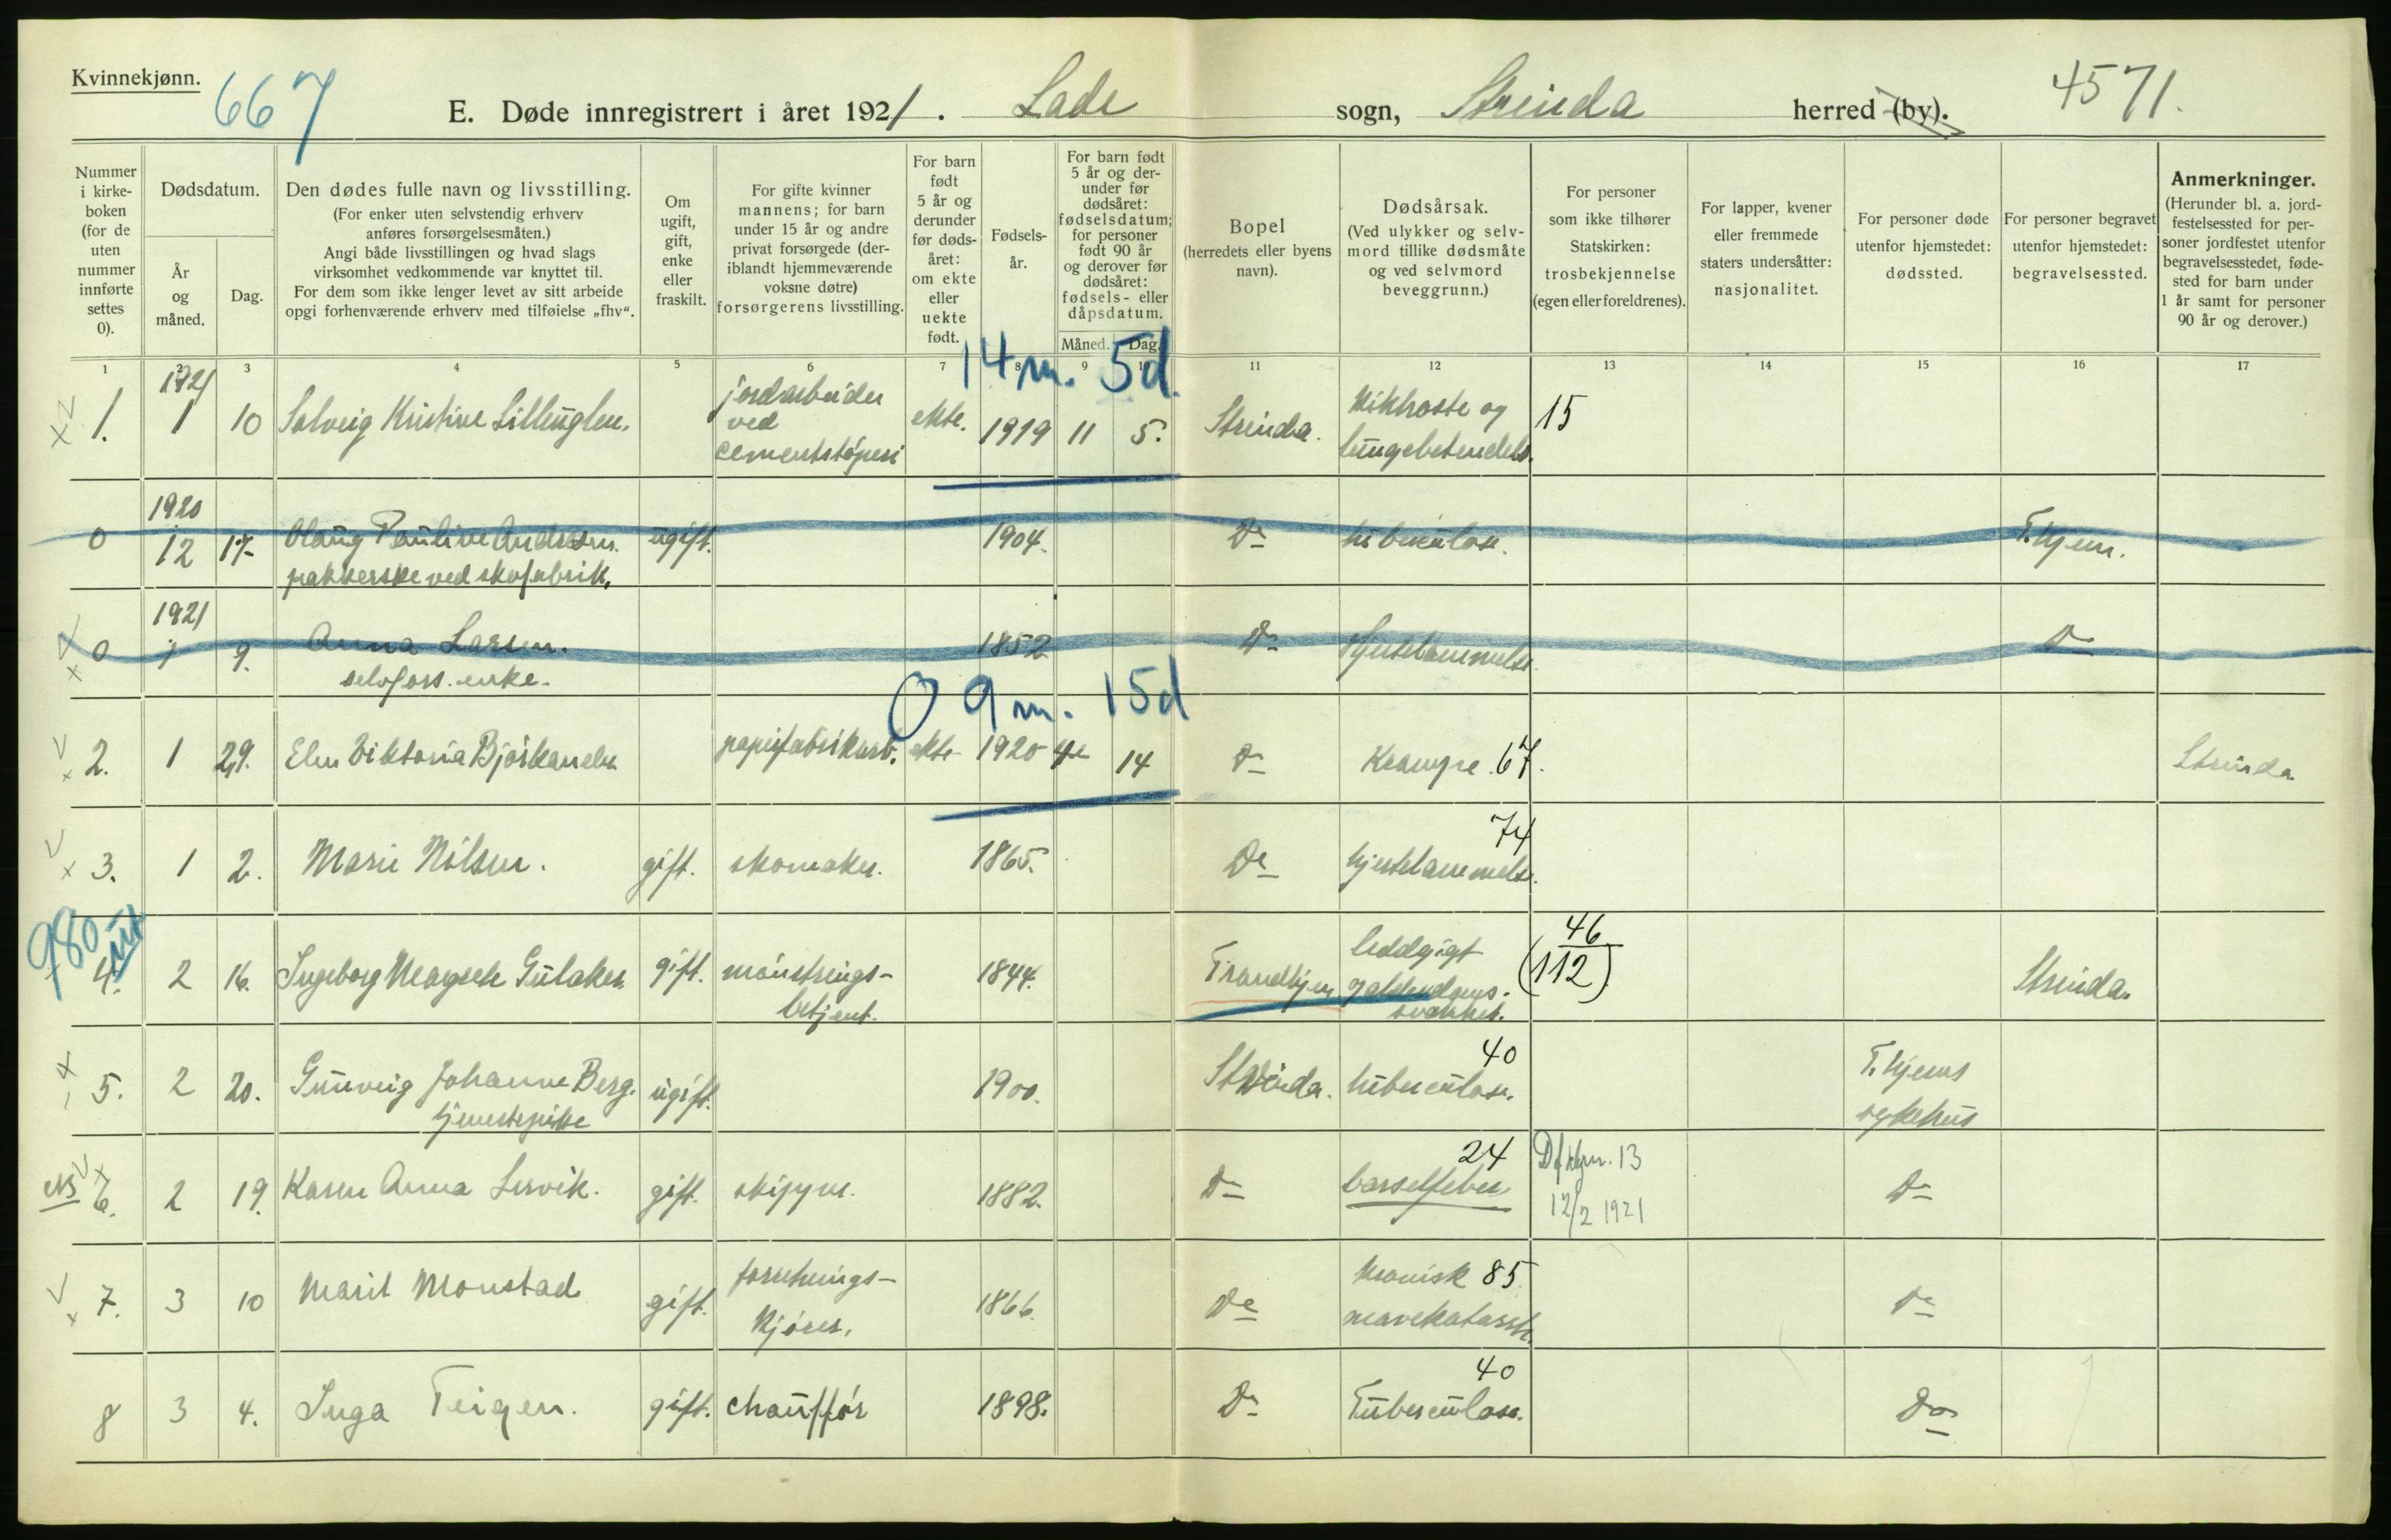 Kvinnekjønn.
667
E. Døde innregistrert i året 1921. Lade sogn, Strinda herred (by).
4571.
Nummer i kirke-boken (for de uten nummer innførte settes 0).
Dødsdatum.
År og måned.
Dag.
Den dødes fulle navn og livsstilling.
(For enker uten selvstendig erhverv anføres forsørgelsesmåten.)
Angi både livsstillingen og hvad slags virksomhet vedkommende var knyttet til.
For dem som ikke lenger levet av sitt arbeide opgi forhenværende erhverv med tilføielse „fhv“.
Om ugift, gift, enke eller fraskilt.
For gifte kvinner mannens; for barn under 15 år og andre privat forsørgede (deriblandt hjemmeværende voksne døtre) forsørgerens livsstilling.
For barn født 5 år og derunder før dødsåret: om ekte eller uekte født.
Fødsels-år.
For barn født 5 år og derunder før dødsåret: fødselsdatum; for personer født 90 år og derover før dødsåret: fødsels- eller dåpsdatum.
Måned. Dag.
Bopel
(herredets eller byens navn).
Dødsårsak.
(Ved ulykker og selvmord tillike dødsmåte og ved selvmord beveggrunn.)
For personer som ikke tilhører Statskirken: trosbekjennelse (egen eller foreldrenes).
For lapper, kvener eller fremmede staters undersåtter: nasjonalitet.
For personer døde utenfor hjemstedet: dødssted.
For personer begravet utenfor hjemstedet: begravelsessted.
Anmerkninger.
(Herunder bl. a. jordfestelsessted for personer jordfestet utenfor begravelsesstedet, fødested for barn under 1 år samt for personer 90 år og derover.)
1 2 3 4 5 6 7 8 9 10 11 12 13 14 15 16 17
14 m. 5d.
1. 1921 1 10 Solveig Kristine Lilleuglen. jordarbeider ved cementstøperi ekte. 1919 11 5. Strinda. Kikhoste og lungebetendelse. 15
0 1920 12 17 Olaug Pauline Andresen. pakkerske ved skofabrik. ugift. 1904. Do tuberculose. T.hjem.
0 1921 1 9. Anna Larsen. selvfors. enke. 1852 Do Hjertelammelse Do
0 9 m. 15d
2. 1 29. Viktoria papirfabrikarb. ekte 1920 4 14 Do Krampe. 67. Strinda
3. 1 2. Marie Nilsen. gift. skomaker. 1865. Do 74 hjertelammelse.
980 ut
4. 2 16. Ingeborg gift. mønstrings-betjent. 1844. Trondhjem leddgigt og alderdoms-svakhet. 46 (112) Strinda.
5. 2 20. Gunveig Johanne Berg. tjenestepike ugift. 1900. Strinda. 40 tuberculose. T.hjems sykehus
6. 2 19. Karen Anna Lervik. gift. skipper. 1882. Do 24 barselfeber 13 12/2 1921 Do
7. 3 10 Marit Monstad gift. forretnings-kjører. 1866. Do kronisk 85 mavekatarrh. Do
8 3 4. Inga Teigen. gift. chauffør 1898. Do 40 Tuberculose. Do